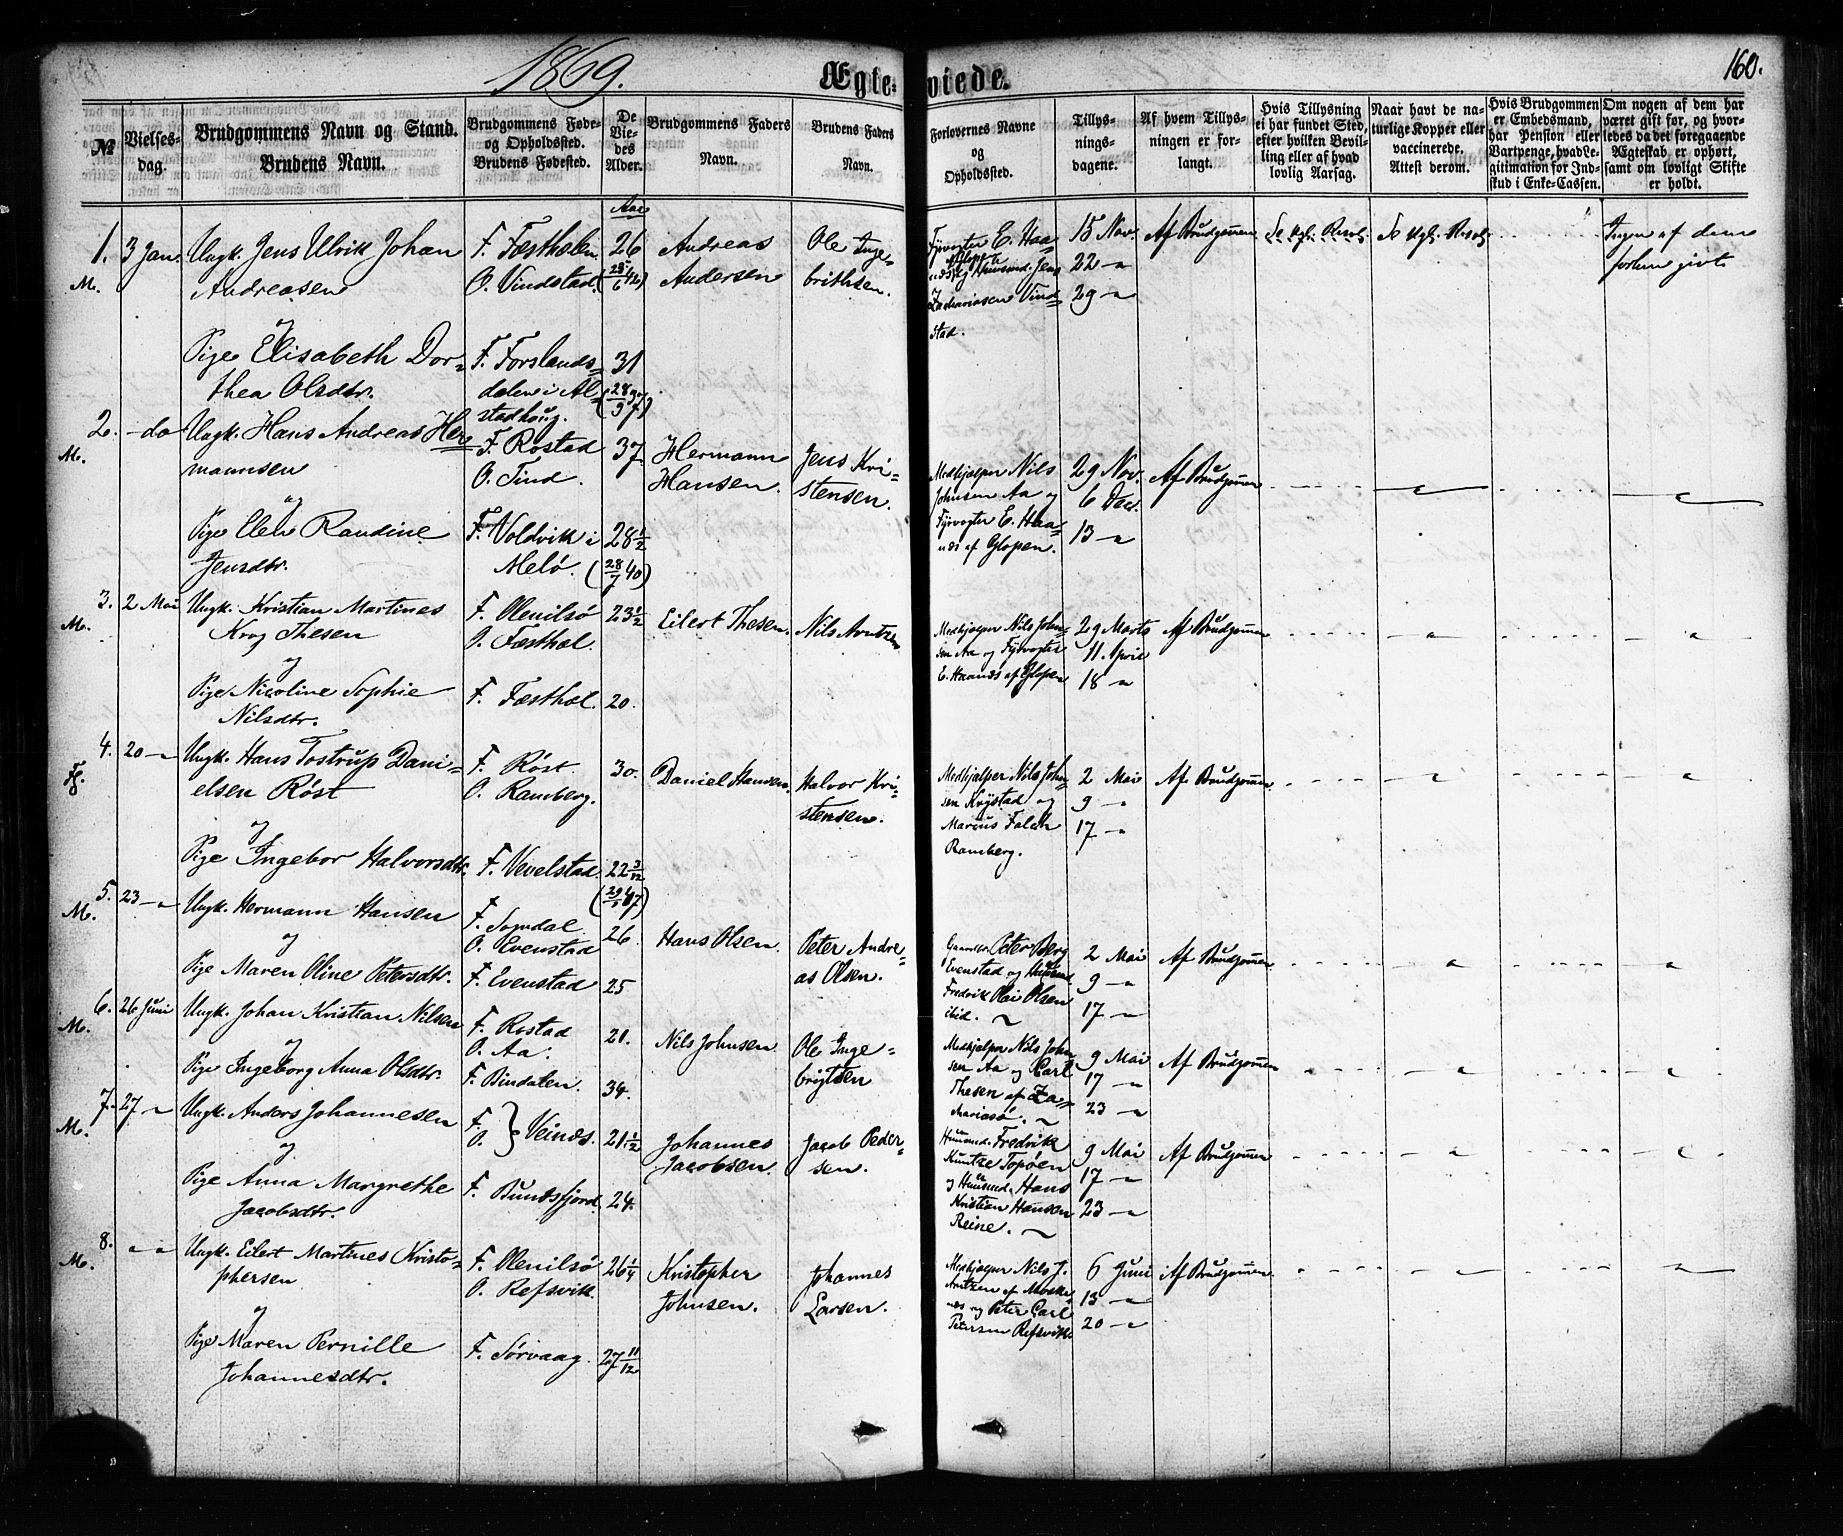 1869.
Ægte-viede.
160.
№
Vielses-dag.
Brudgommens Navn og Stand.
Brudens Navn.
Brudgommens Føde- og Opholdssted.
Brudens Fødested.
De Viedes Alder.
Brudgommens Faders Navn.
Brudens Faders Navn.
Forlovernes Navne og Opholdsted.
Tillysnings-dagene.
Af hvem Tillysningen er forlangt.
Hvis Tillysning ei har fundet Sted, efter hvilken Bevilling eller af hvad lovlig Aarsag.
Naar havt de naturlige Kopper eller vaccinerede. Attest derom.
Hvis Brudgommen er Embedsmand, har Pension eller Vartpenge, hvad Legitimation for Indskud i Enke-Cassen.
Om nogen af dem har været gift før, og hvorledes da det foregaaende Ægteskab er ophørt, samt om lovligt Skifte er holdt.
Aar
1. M. 3 Jan. Ungk. Jens Ulrik Johan Andreasen
F. Festhælen O. Vindstad. 26 (28/6 42)
Andreas Andersen
Ole Ingebrithsen.
Fyrvogter E. Haanæs Glopen og Huusmd. Jens Zachariasen Vindstad.
15 Nov. 22 〃 29 〃
Af Brudgommen
Ingen af dem forhen givt
og
Pige Elisabeth Dorthea Olsdtr.
F. Forslandsdalen i Alstadhoug. 31 (28/9 37)
2. M. - do Ungk. Hans Andreas Hermannsen
F. Rostad O. Tind. 37
Hermann Hansen.
Jens Kristensen.
Medhjælper Nils Johnsen Aa og Fyrvogter E. Haanæs af Glopen.
29 Nov. 6 Dec. 13 〃
Af Brudgommen
og
Pige Elen Randine Jensdtr.
F. Voldvik i Melø. 28 1/2 (28/7 40)
3. M. 2 Mai Ungk. Kristian Martines Krog Thesen
F. Olenilsø O. Festhæl. 23 1/2
Eilert Thesen.
Nils Arntzen
Medhjælper Nils Johnsen Aa og Fyrvogter E. Haanæs af Glopen
29 Marts 11. April 18 〃
Af Brudgommen
og
Pige Nicoline Sophie Nilsdtr.
F. Festhæl. 20.
4. Fl. 20 〃 Ungk. Hans Tostrup Danielsen Røst
F. Røst. O. Ramberg. 30.
Daniel Hansen.
Halvor Kristensen.
Medhjælper Nils Johnsen Krystad og Marius Falch Ramberg.
2 Mai 9 〃 17 〃
Af Brudgommen
og
Pige Ingebor Halvorsdtr.
F. Vevelstad. 22 3/12
5. M. 23 〃 Ungk. Hermann Hansen
F. Sogndal O. Evenstad 26.
Hans Olsen.
Peter Andreas Olsen.
Gaardbr. Peter Berg Evenstad og Huusmd Fredrik Olai Olsen ibid.
2 Mai 9 〃 17 〃
Af Brudgommen
og
Pige Maren Oline Petersdtr.
F. Evenstad 25
6. M. 26 Juni Ungk. Johan Kristian Nilsen
F. Rostad O. Aa. 21.
Nils Johnsen
Ole Ingebrigtsen
Medhjælper Nils Johnsen Aa og Carl Thesen af Zachariasø.
9 Mai 17 〃 23 〃
Af Brudgommen
og
Pige Ingeborg Anna Olsdtr.
F. Bindalen. 34.
7. M. 27 〃 Ungk. Anders Johannesen
F. O. } Veines. 21 1/2
Johannes Jacobsen.
Jacob Pedersen.
Huusmd. Fredrik Kuntze Topøen og Huusmd. Hans Kristian Hansen Reine.
9 Mai 17 〃 23 〃
Af Brudgommen
og
Pige Anna Margrethe Jacobsdtr.
F. Bunesfjord. 24.
8. M. 〃 〃 Ungk. Eilert Martines Kristophersen
F. Olenilsø O. Refsvik. 26 1/4
Kristopher Johnsen.
Johannes Larsen.
Medhjælper Nils J. Arntzen af Moskenæs og Peter Carl Petersen Refsvik.
6 Juni 13 〃 20 〃
Af Brudgommen
og
Pige Maren Pernille Johannesdtr.
F. Sørvaag. 27 11/12